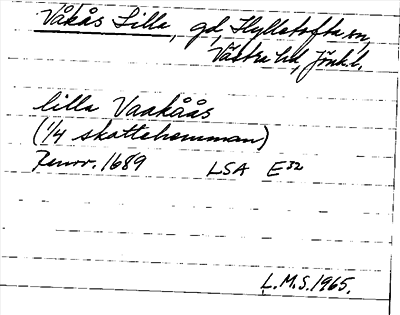 Våkås Lilla, gd, Hylletofta sn,
Västra hd, Jönk.l.
lilla Vaakåås
(1/4 skattehemman)
Renov. 1689 LSA E32
L.M.S. 1965.